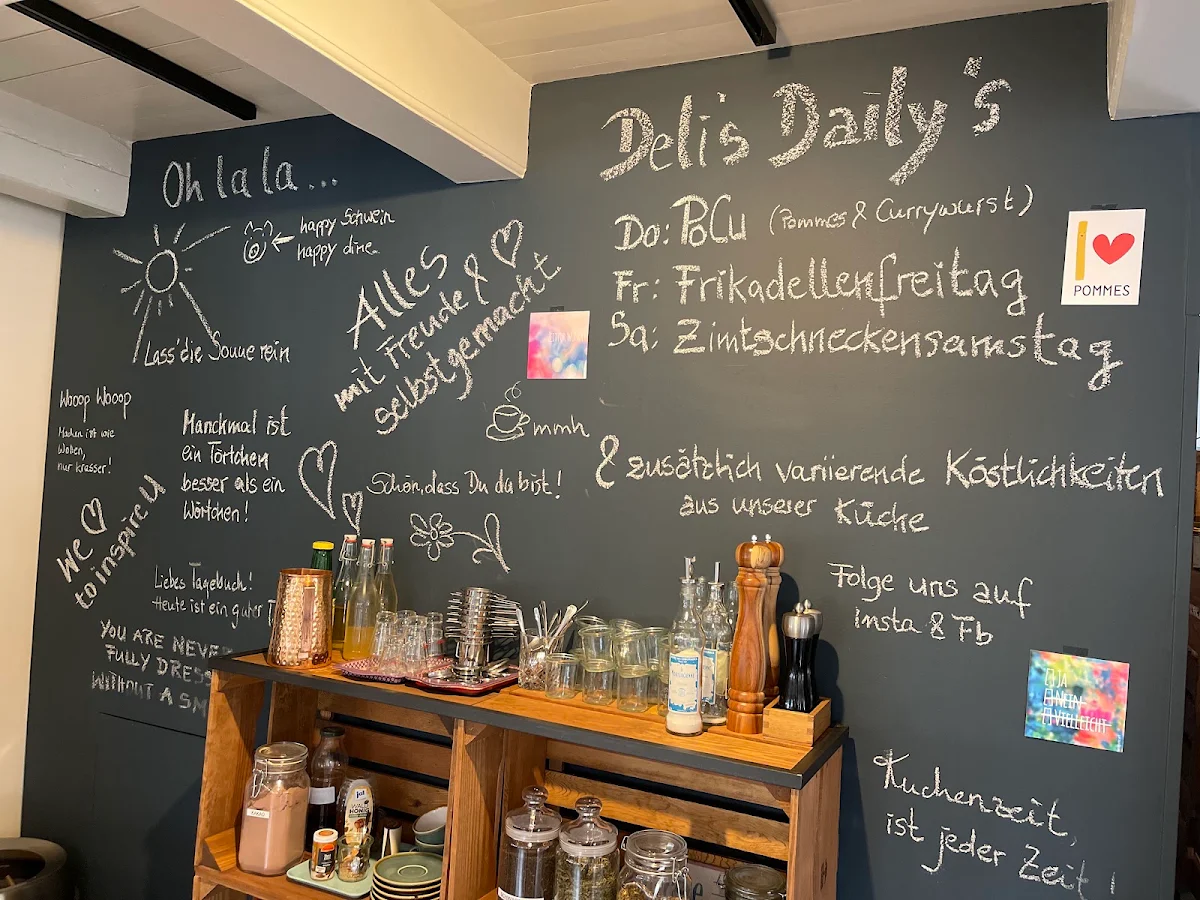 Oh la la...
happy Schwein
happy dine..
Lass' die Sonne rein
Alles
mit Freude &
selbstgemacht
Wooop Wooop
Machen ist wie
Wollen,
nur krasser!
Manchmal ist
ein Törtchen
besser als ein
Wörtchen!
mmh
Schön, dass Du da bist!
We
to inspire U
Liebes Tagebuch!
Heute ist ein guter
YOU ARE NEVER
FULLY DRESS
WITHOUT A SM
Deli's Daily's
Do: PoCu (Pommes & Currywurst)
Fr: Frikadellenfreitag
Sa: Zimtschneckensamstag
I
POMMES
& zusätzlich variierende Köstlichkeiten
aus unserer Küche
Folge uns auf
Insta & Fb
JA
NEIN
VIELLEICHT
Kuchenzeit,
ist jeder Zeit!
KAKAO
ja!
WALD
HONIG